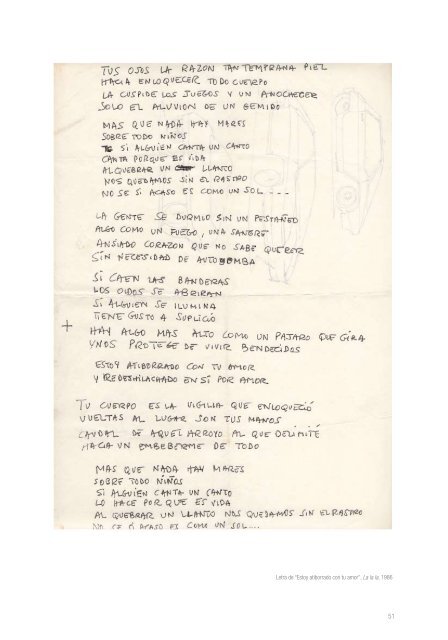 TUS OJOS LA RAZON TAN TEMPRANA PIEL
HACIA ENLOQUECER TODO CUERPO
LA CUSPIDE LOS JUEGOS Y UN ANOCHECER
SOLO EL ALUVION DE UN GEMIDO
MAS QUE NADA HAY MARES
SOBRE TODO NIÑOS
SI ALGUIEN CANTA UN CANTO
CANTA PORQUE ES VIDA
AL QUEBRAR UN LLANTO
NOS QUEDAMOS SIN EL RASTRO
NO SE SI ACASO ES COMO UN SOL ....
LA GENTE SE DURMIO SIN UN PESTAÑEO
ALGO COMO UN FUEGO, UNA SANGRE
ANSIADO CORAZON QUE NO SABE QUERER
SIN NECESIDAD DE AUTOBOMBA
SI CAEN LAS BANDERAS
LOS OIDOS SE ABRIRAN
SI ALGUIEN SE ILUMINA
TIENE GUSTO A SUPLICIO
+ HAY ALGO MAS ALTO COMO UN PAJARO QUE GIRA
Y NOS PROTEGE DE VIVIR BENDECIDOS
ESTOY ATIBORRADO CON TU AMOR
Y REDESHILACHADO EN SÍ POR AMOR.
TU CUERPO ES LA VIGILIA QUE ENLOQUECIÓ
VUELTAS AL LUGAR SON TUS MANOS
CAUDAL DE AQUEL ARROYO AL QUE DELIMITÉ
HACIA UN EMBEBERME DE TODO
MAS QUE NADA HAY MARES
SOBRE TODO NIÑOS
SI ALGUIEN CANTA UN CANTO
LO HACE POR QUE ES VIDA
AL QUEBRAR UN LLANTO NOS QUEDAMOS SIN EL RASTRO
NO SE SI ACASO ES COMO UN SOL....
Letra de "Estoy atiborrado con tu amor", La la la, 1986
51